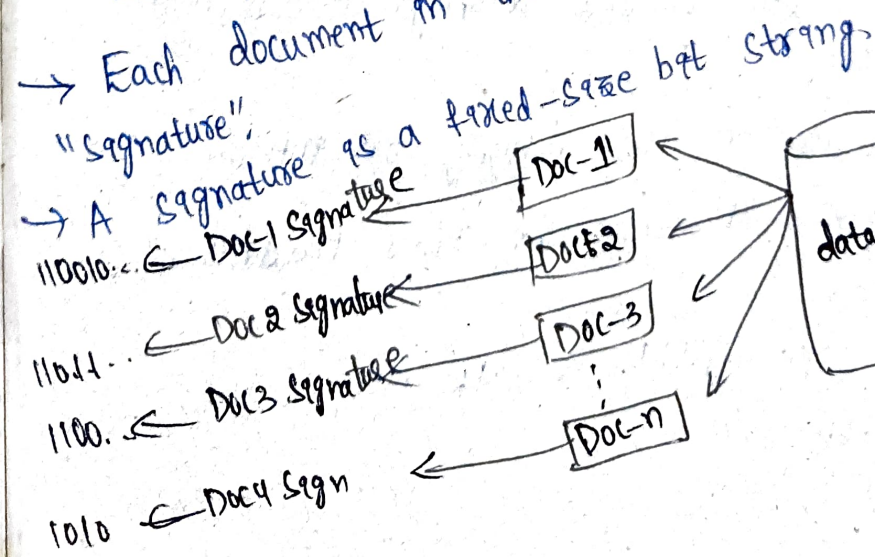 → Each document in
"signature".
→ A signature is a fixed-size bit string.
Doc-1
110010... ← Doc-1 Signature
Doc-2
data
11011.. ← Doc 2 Signature
Doc-3
1100. ← Doc3 Signature
Doc-n
1010 ← Doc4 Sign